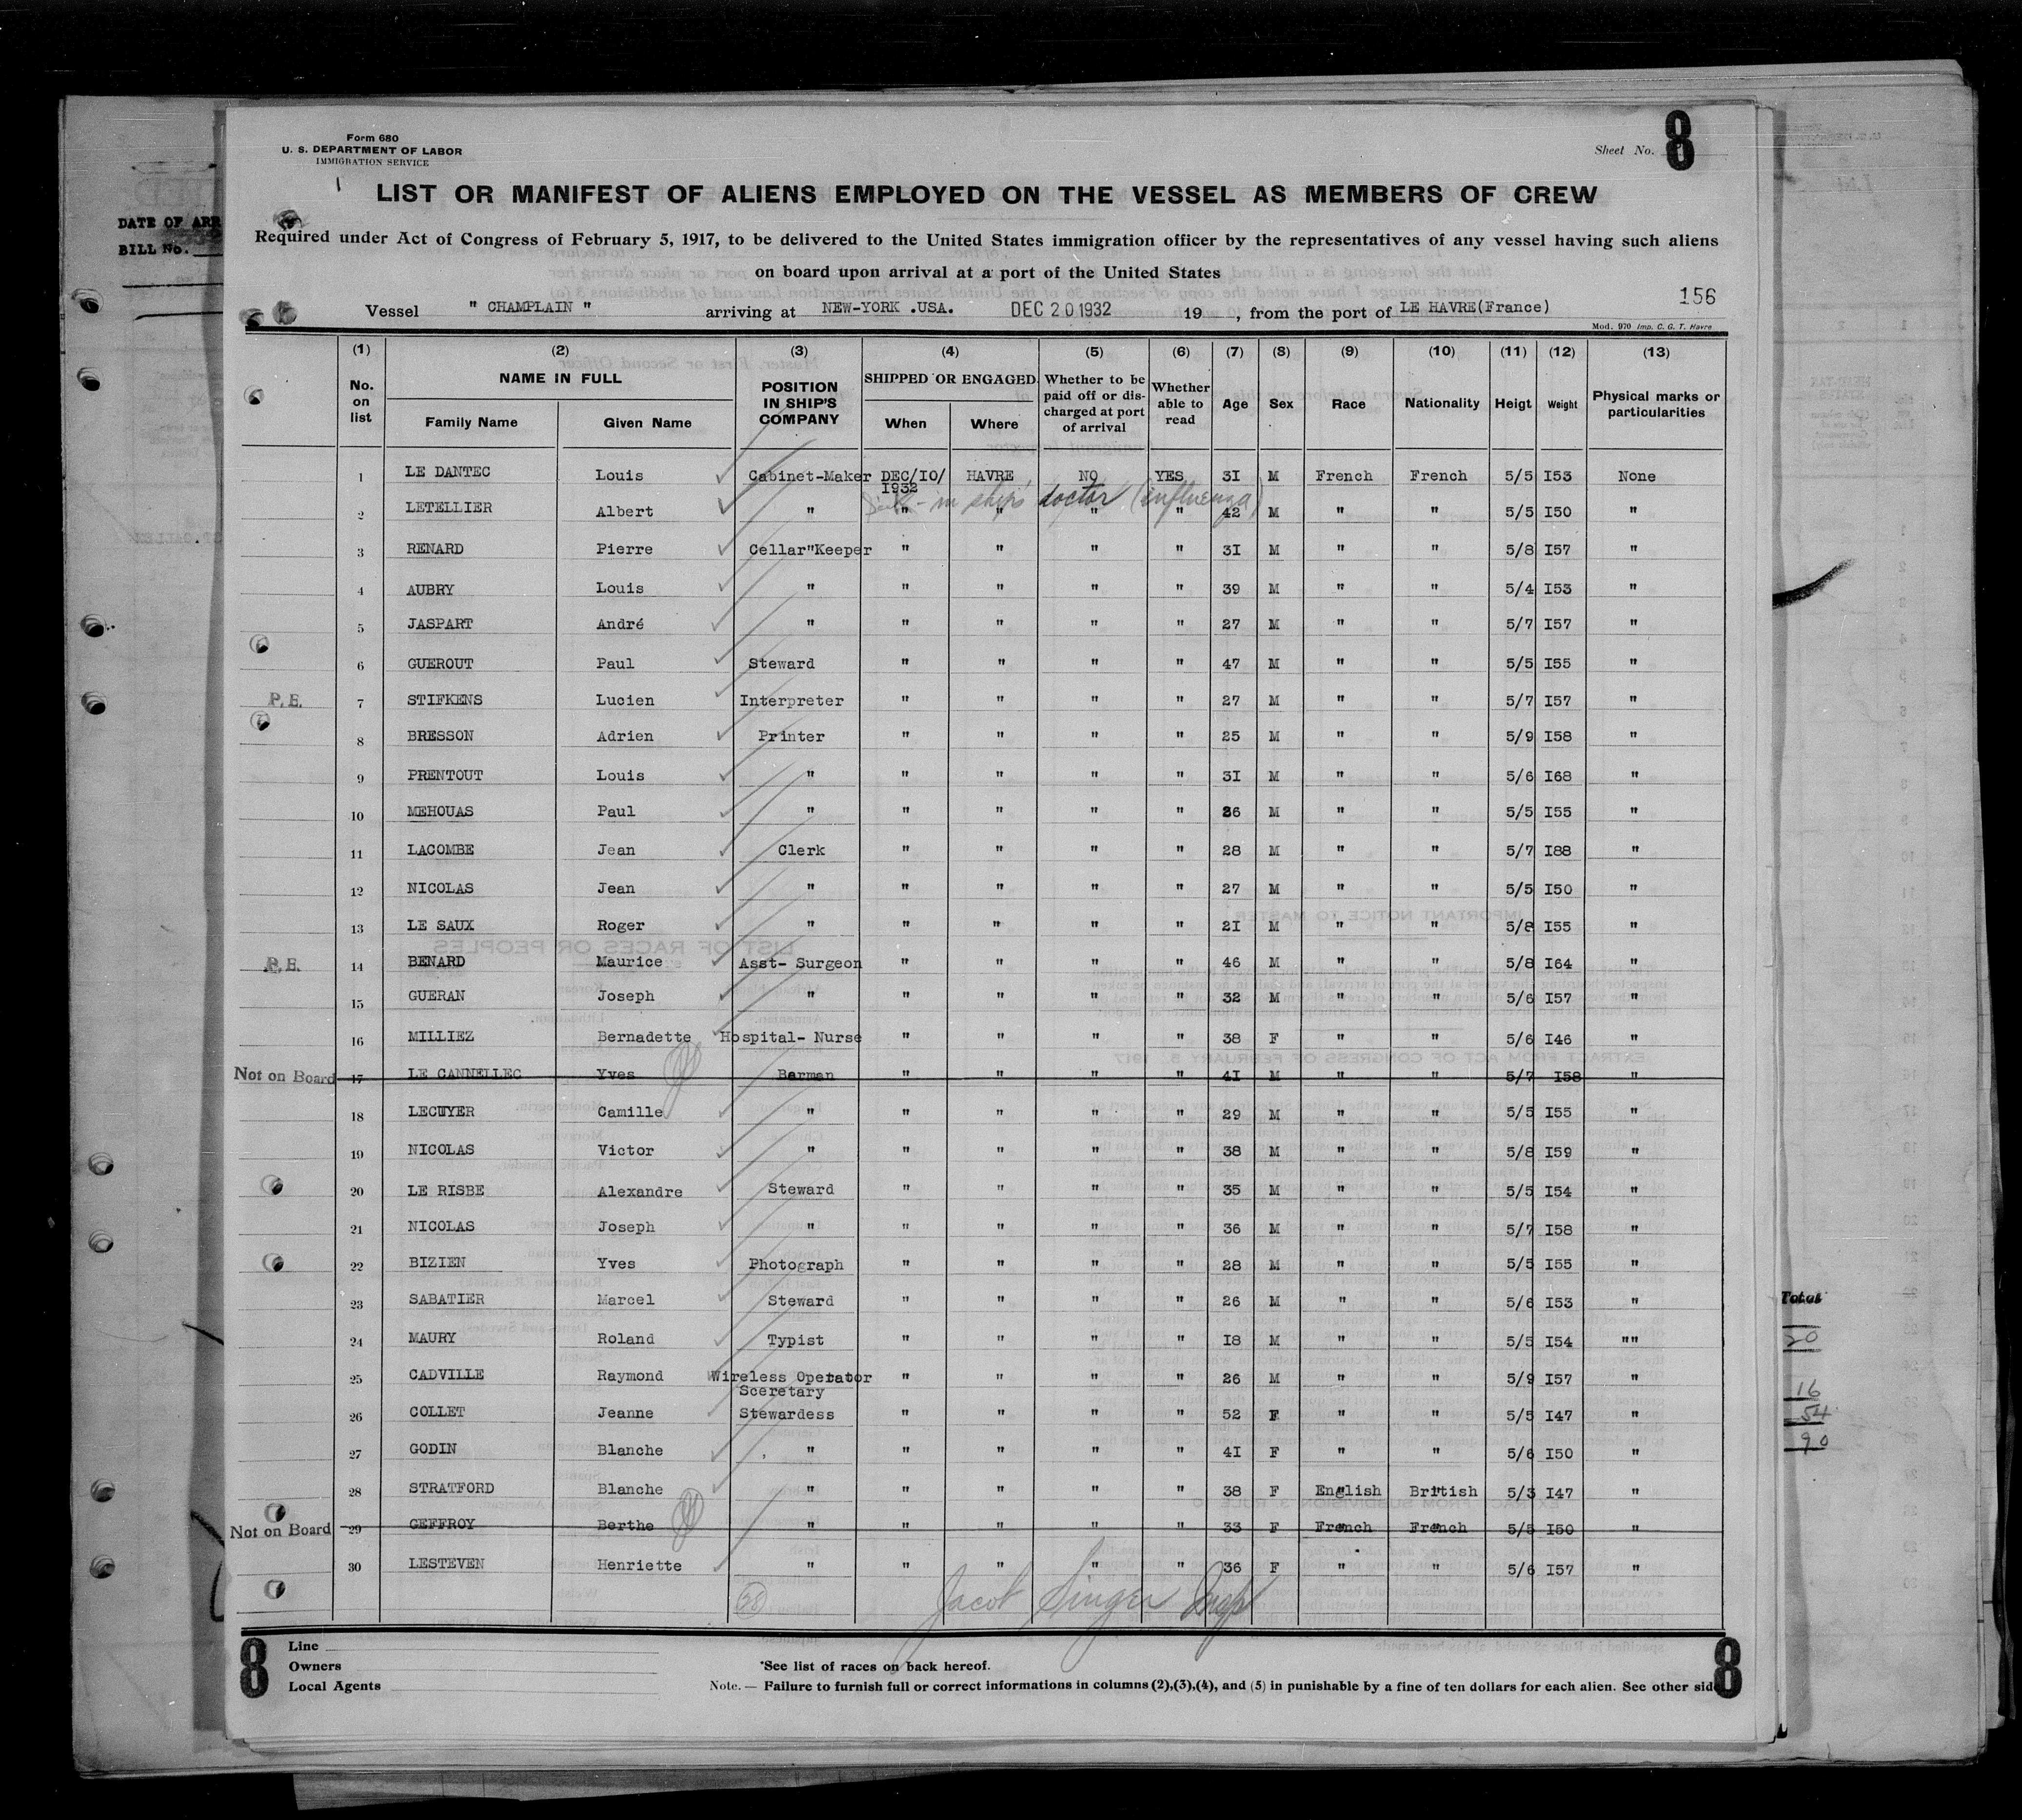 Form 680
U. S. DEPARTMENT OF LABOR
IMMIGRATION SERVICE
Sheet No. 8
LIST OR MANIFEST OF ALIENS EMPLOYED ON THE VESSEL AS MEMBERS OF CREW
DATE OF ARR
BILL No.
Required under Act of Congress of February 5, 1917, to be delivered to the United States immigration officer by the representatives of any vessel having such aliens
on board upon arrival at a port of the United States
156
Vessel " CHAMPLAIN " arriving at NEW-YORK .USA. DEC 20 1932 19 , from the port of LE HAVRE(France)
Mod. 970 Imp. C. G. T. Havre
(1) (2) (3) (4) (5) (6) (7) (8) (9) (10) (11) (12) (13)
No. on list NAME IN FULL Family Name Given Name POSITION IN SHIP'S COMPANY SHIPPED OR ENGAGED When Where Whether to be paid off or discharged at port of arrival Whether able to read Age Sex Race Nationality Heigt Weight Physical marks or particularities
1 LE DANTEC Louis Cabinet-Maker DEC/IO/ 1932 HAVRE NO YES 3I M French French 5/5 I53 None
in ship's doctor (influenza)
2 LETELLIER Albert " " " " " 42 M " " 5/5 I50 "
3 RENARD Pierre Cellar"Keeper " " " " 3I M " " 5/8 I57 "
4 AUBRY Louis " " " " " 39 M " " 5/4 I53 "
5 JASPART André " " " " " 27 M " " 5/7 I57 "
6 GUEROUT Paul Steward " " " " 47 M " " 5/5 I55 "
P.E. 7 STIFKENS Lucien Interpreter " " " " 27 M " " 5/7 I57 "
8 BRESSON Adrien Printer " " " " 25 M " " 5/9 I58 "
9 PRENTOUT Louis " " " " " 3I M " " 5/6 I68 "
10 MEHOUAS Paul " " " " " 26 M " " 5/5 I55 "
11 LACOMBE Jean Clerk " " " " 28 M " " 5/7 I88 "
12 NICOLAS Jean " " " " " 27 M " " 5/5 I50 "
13 LE SAUX Roger " " " " " 2I M " " 5/8 I55 "
P.E. 14 BENARD Maurice Asst- Surgeon " " " " 46 M " " 5/8 I64 "
15 GUERAN Joseph " " " " " 32 M " " 5/6 I57 "
16 MILLIEZ Bernadette Hospital- Nurse " " " " 38 F " " 5/6 I46 "
Not on Board 17 LE CANNELLEC Yves Barman " " " " 4I M " " 5/7 I58 "
18 LECUYER Camille " " " " " 29 M " " 5/5 I55 "
19 NICOLAS Victor " " " " " 38 M " " 5/8 I59 "
20 LE RISBE Alexandre Steward " " " " 35 M " " 5/5 I54 "
21 NICOLAS Joseph " " " " " 36 M " " 5/7 I58 "
22 BIZIEN Yves Photograph " " " " 28 M " " 5/5 I55 "
23 SABATIER Marcel Steward " " " " 26 M " " 5/6 I53 "
24 MAURY Roland Typist " " " " I8 M " " 5/5 I54 ""
25 CADVILLE Raymond Wireless Operator Sceretary " " " " 26 M " " 5/9 I57 "
26 COLLET Jeanne Stewardess " " " " 52 F " " 5/5 I47 "
27 GODIN Blanche " " " " " 4I F " " 5/6 I50 "
28 STRATFORD Blanche " " " " " 38 F English British 5/3 I47 "
Not on Board 29 GEFFROY Berthe " " " " " 33 F French French 5/5 I50 "
30 LESTEVEN Henriette " " " " " 36 F " " 5/6 I57 "
28 Jacob Singer Insp
Total
20
16
54
90
8 Line
Owners
Local Agents
*See list of races on back hereof.
Note. — Failure to furnish full or correct informations in columns (2),(3),(4), and (5) in punishable by a fine of ten dollars for each alien. See other side
8